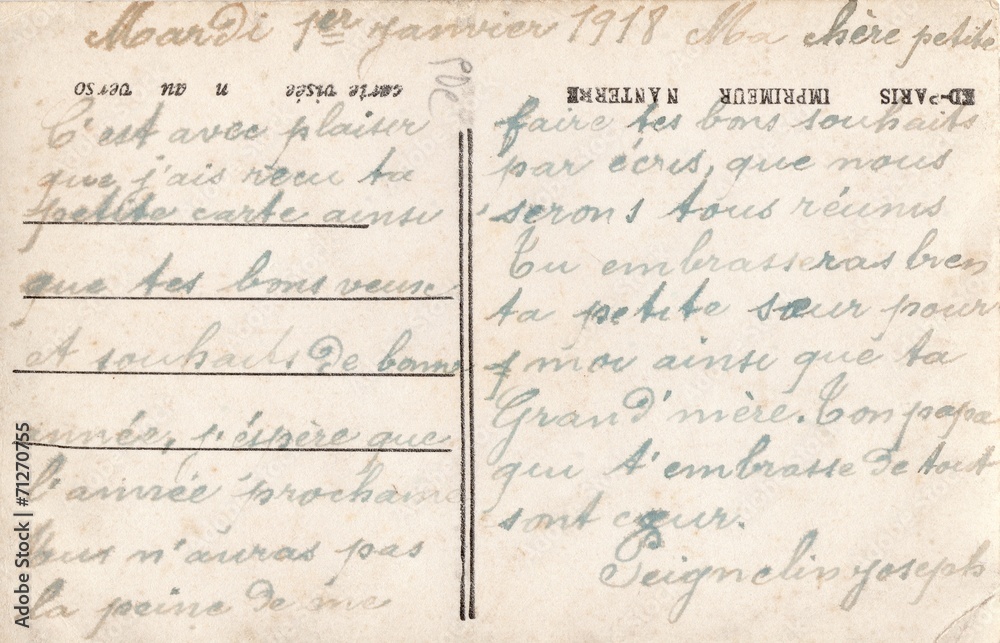 Mardi 1er janvier 1918 Ma chère petite
C'est avec plaisir
que j'ais recu ta
petite carte ainsi
que tes bons veuse
et souhaits de bonne
année, j'éspère que
l'année prochaine
tus n'auras pas
la peine de me
faire tes bons souhaits
par écris, que nous
serons tous réunis
Tu embrasseras bien
ta petite sœur pour
moi ainsi que ta
Grand'mère. Ton papa
qui t'embrasse de tout
sont cœur.
Peignelin joseph
carte visée n au verso
ED-PARIS IMPRIMEUR NANTERRE
Adobe Stock | #71270755